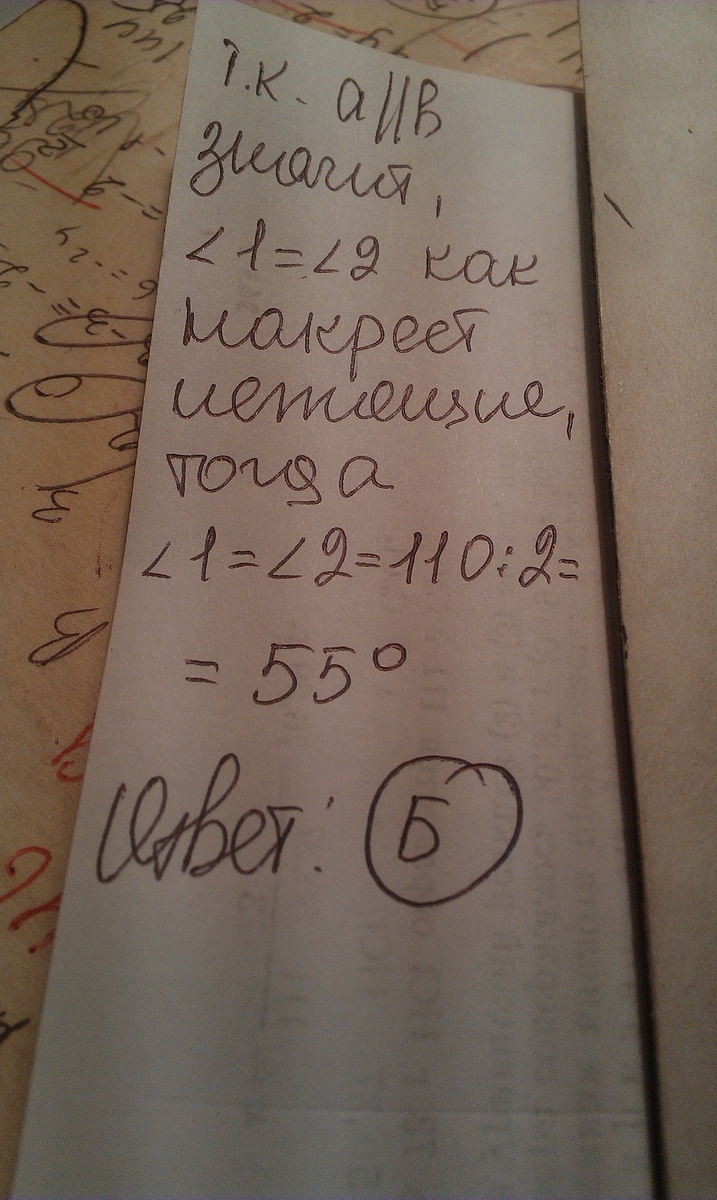 т.к. a||b
значит,
<1=<2 как
накрест
лежащие,
тогда
<1=<2=110:2=
= 55°
Ответ: Б